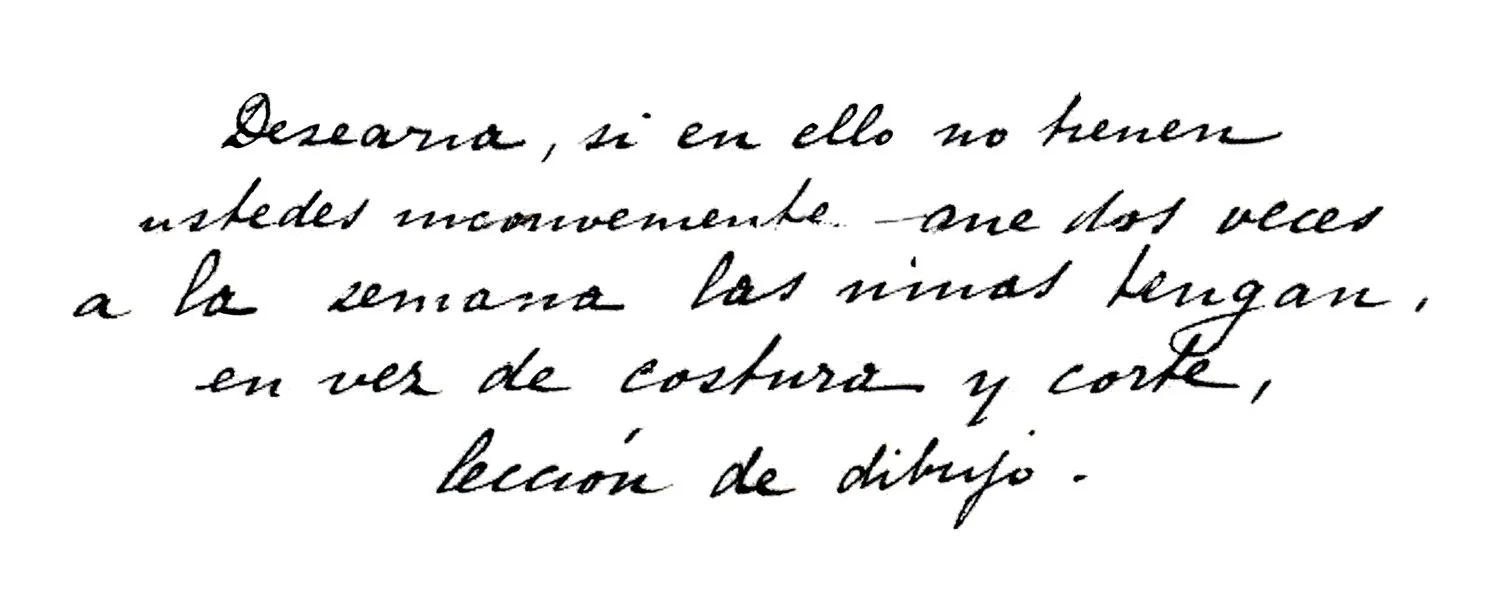 Desearia, si en ello no tienen
ustedes inconveniente - que dos veces
a la semana las ninas tengan,
en vez de costura y corte,
lección de dibujo.